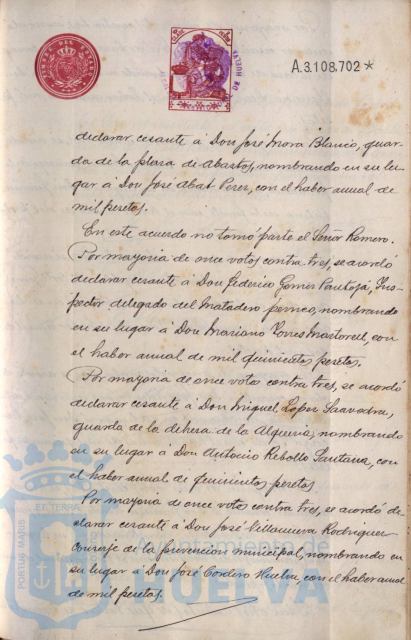 A.3.108.702*
declarar cesante á Don José Mora Blanco, guar-
da de la plaza de abastos, nombrando en su lu-
gar á Don José Abat Perez, con el haber anual de
mil pesetas.
En este acuerdo no tomó parte el Señor Romero.
Por mayoria de once votos contra tres, se acordó
declarar cesante á Don Federico Gomez Pantoja, Ins-
pector delegado del Matadero público, nombrando
en su lugar á Don Mariano Torres Martorell, con
el haber anual de mil quinientas pesetas.
Por mayoria de once votos contra tres, se acordó
declarar cesante á Don Miguel Lopez Saavedra,
guarda de la dehesa de la Alquería, nombrando
en su lugar á Don Antonio Rebollo Santana, con
el haber anual de quinientas pesetas.
Por mayoria de once votos contra tres, se acordó de-
clarar cesante á Don José Villanueva Rodriguez
Conserje de la prevencion municipal, nombrando en
su lugar á Don José Cordero Huelva, con el haber anual
de mil pesetas.
PORTUS MARIS
ET TERRÆ
Ayuntamiento de
HUELVA